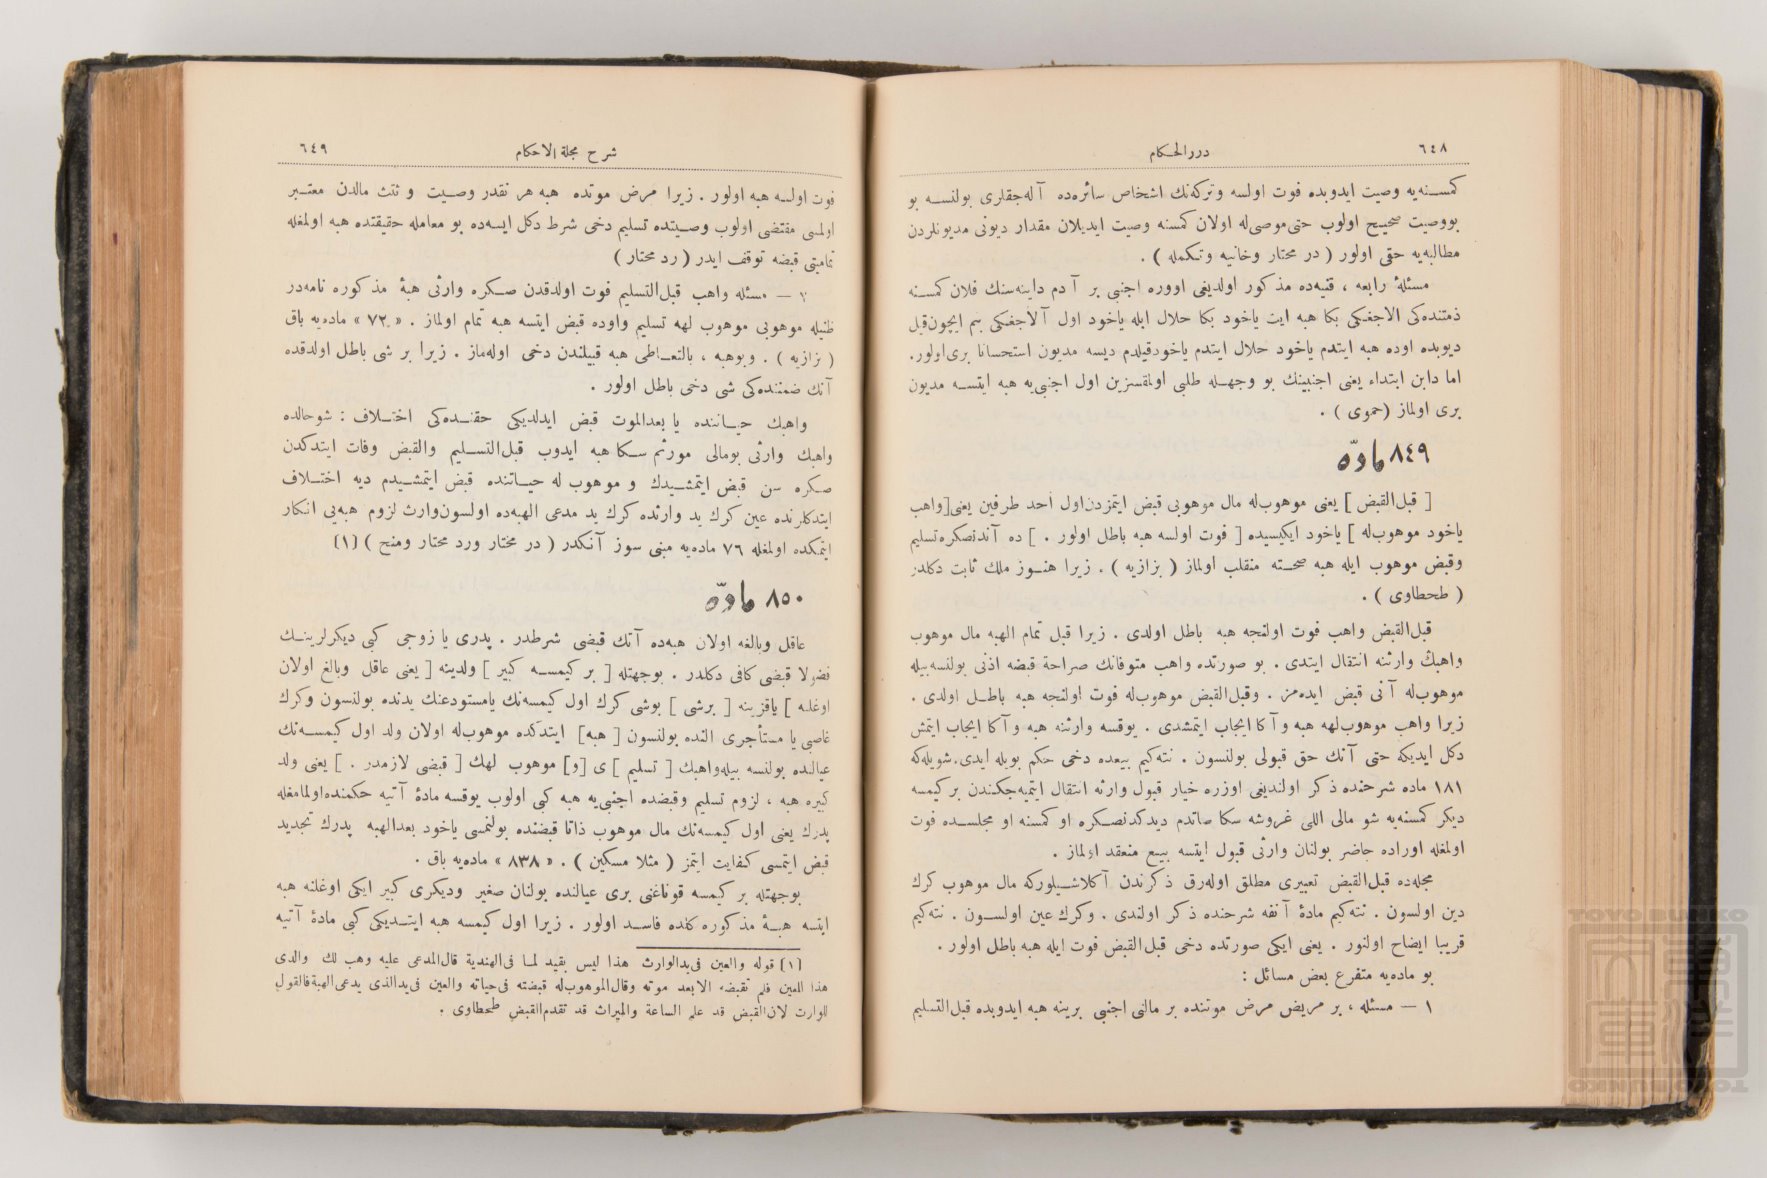 ٦٤٨
دررالحكام
كمسنه‌يه وصيت ايدوبده فوت اولسه وتركه‌نك اشخاص سائره‌ده آله‌جقلرى بولنسه بو
بووصيت صحيح اولوب حتى موصى‌له اولان كمسنه وصيت ايديلان مقدار ديونى مديونلردن
مطالبه‌يه حقى اولور ( در مختار وخانيه وتكمله ) .
مسئلهٔ رابعه ، قنيه‌ده مذكور اولديغى اوزره اجنبى بر آدم داينه‌سنك فلان كمسنه
ذمتنده‌كى الاجغكى بكا هبه ايت ياخود بكا حلال ايله ياخود اول آلاجغكى بم ايچون قيل
ديوبده اوده هبه ايتدم ياخود حلال ايتدم ياخود قيلدم ديسه مديون استحسانا برى اولور.
اما داين ابتداء يعنى اجنبينك بو وجهله طلبى اولمقسزين اول اجنبى‌يه هبه ايتسه مديون
برى اولماز (حموى ) .
٨٤٩ مادّه
[ قبل‌القبض ] يعنى موهوب‌له مال موهوبى قبض ايتمزدن اول احد طرفين يعنى [واهب
ياخود موهوب‌له ] ياخود ايكيسيده [ فوت اولسه هبه باطل اولور . ] ده آندنصكره تسليم
وقبض موهوب ايله هبه صحته منقلب اولماز ( بزازيه ) . زيرا هنوز ملك ثابت دكلدر
( طحطاوى ) .
قبل‌القبض واهب فوت اولنجه هبه باطل اولدى . زيرا قبل تمام الهبه مال موهوب
واهبك وارثنه انتقال ايتدى . بو صورتده واهب متوفانك صراحة قبضه اذنى بولنسه بيله
موهوب‌له آنى قبض ايده‌مز . وقبل‌القبض موهوب‌له فوت اولنجه هبه باطل اولدى .
زيرا واهب موهوب‌لهه هبه و آكا ايجاب ايتمشدى . يوقسه وارثنه هبه و آكا ايجاب ايتمش
دكل ايديكه حتى آنك حق قبولى بولنسون . نته‌كيم بيعده دخى حكم بويله ايدى. شويله‌كه
١٨١ ماده شرحنده ذكر اولنديغى اوزره خيار قبول وارثه انتقال ايتميه‌جكندن بر كيمسه
ديكر كمسنه‌يه شو مالى اللى غروشه سكا صاتدم ديدكدنصكره او كمسنه او مجلسده فوت
اولمغله اوراده حاضر بولنان وارثى قبول ايتسه بيع منعقد اولماز .
مجله‌ده قبل‌القبض تعبيرى مطلق اوله‌رق ذكرندن آكلاشيلوركه مال موهوب كرك
دين اولسون . نته‌كيم مادهٔ آنفه شرحنده ذكر اولندى . وكرك عين اولسون . نته‌كيم
قريبا ايضاح اولنور . يعنى ايكى صورتده دخى قبل‌القبض فوت ايله هبه باطل اولور .
بو ماده‌يه متفرع بعض مسائل :
١ — مسئله ، بر مريض مرض موتنده بر مالنى اجنبى برينه هبه ايدوبده قبل‌التسليم
شرح مجلة الاحكام
٦٤٩
فوت اولسه هبه اولور . زيرا مرض موتده هبه هر نقدر وصيت و ثلث مالدن معتبر
اولمسى مقتضى اولوب وصيتده تسليم دخى شرط دكل ايسه‌ده بو معامله حقيقتده هبه اولمغله
تماميتى قبضه توقف ايدر ( رد محتار )
٧ — مسئله واهب قبل‌التسليم فوت اولدقدن صكره وارثى هبهٔ مذكوره نامه‌در
ظنيله موهوبى موهوب لهه تسليم واوده قبض ايتسه هبه تمام اولماز . « ٧٢ » ماده‌يه باق
( بزازيه ) . وبوهبه ، بالتعاطى هبه قبيلندن دخى اوله‌ماز . زيرا بر شى باطل اولدقده
آنك ضمننده‌كى شى دخى باطل اولور .
واهبك حياتنده يا بعدالموت قبض ايدلديكى حقنده‌كى اختلاف : شوحالده
واهبك وارثى بومالى مورثم سكا هبه ايدوب قبل‌التسليم والقبض وفات ايتدكدن
صكره سن قبض ايتمشيدك و موهوب له حياتنده قبض ايتمشيدم ديه اختلاف
ايتدكلرنده عين كرك يد وارثده كرك يد مدعى الهبه‌ده اولسون وارث لزوم هبه‌يى انكار
ايتمكده اولمغله ٧٦ ماده‌يه مبنى سوز آنكدر ( در مختار ورد محتار ومنح ) (١)
٨٥٠ مادّه
عاقل وبالغه اولان هبه‌ده آنك قبضى شرطدر . پدرى يا زوجى كبى ديكرلرينك
فضولا قبضى كافى دكلدر . بوجهتله [ بر كيمسه كبير ] ولدينه [ يعنى عاقل وبالغ اولان
اوغلنه ] ياقزينه [ برشى ] بوشى كرك اول كيمسه‌نك يامستودعنك يدنده بولنسون وكرك
غاصبى يا مستأجرى النده بولنسون [ هبه] ايتدكده موهوب‌له اولان ولد اول كيمسه‌نك
عيالنده بولنسه بيله واهبك [ تسليم ] ى [و] موهوب لهك [ قبضى لازمدر . ] يعنى ولد
كبيره هبه ، لزوم تسليم وقبضده اجنبى‌يه هبه كبى اولوب يوقسه مادهٔ آتيه حكمنده اولمامغله
پدرك يعنى اول كيمسه‌نك مال موهوب ذاتا قبضنده بولنمسى ياخود بعدالهبه پدرك تجديد
قبض ايتمسى كفايت ايتمز ( مثلا مسكين ) . « ٨٣٨ » ماده‌يه باق .
بوجهتله بر كيمسه قوناغنى برى عيالنده بولنان صغير وديكرى كبير ايكى اوغلنه هبه
ايتسه هبهٔ مذكوره كلده فاسد اولور . زيرا اول كيمسه هبه ايتديكى كبى مادهٔ آتيه
(١) قوله والعين فى‌يدالوارث هذا ليس بقيد لما فى‌الهندية قال‌المدعى عليه وهب لك والدى
هذا العين فلم تقبضه الابعد موته وقال‌الموهوب‌له قبضته فى‌حياته والعين فى‌يدالذى يدعى‌الهبة فالقول
للوارث لان‌القبض قد علم الساعة والميراث قد تقدم‌القبض طحطاوى .
TOYO BUNKO
東洋文庫
TOYO BUNKO